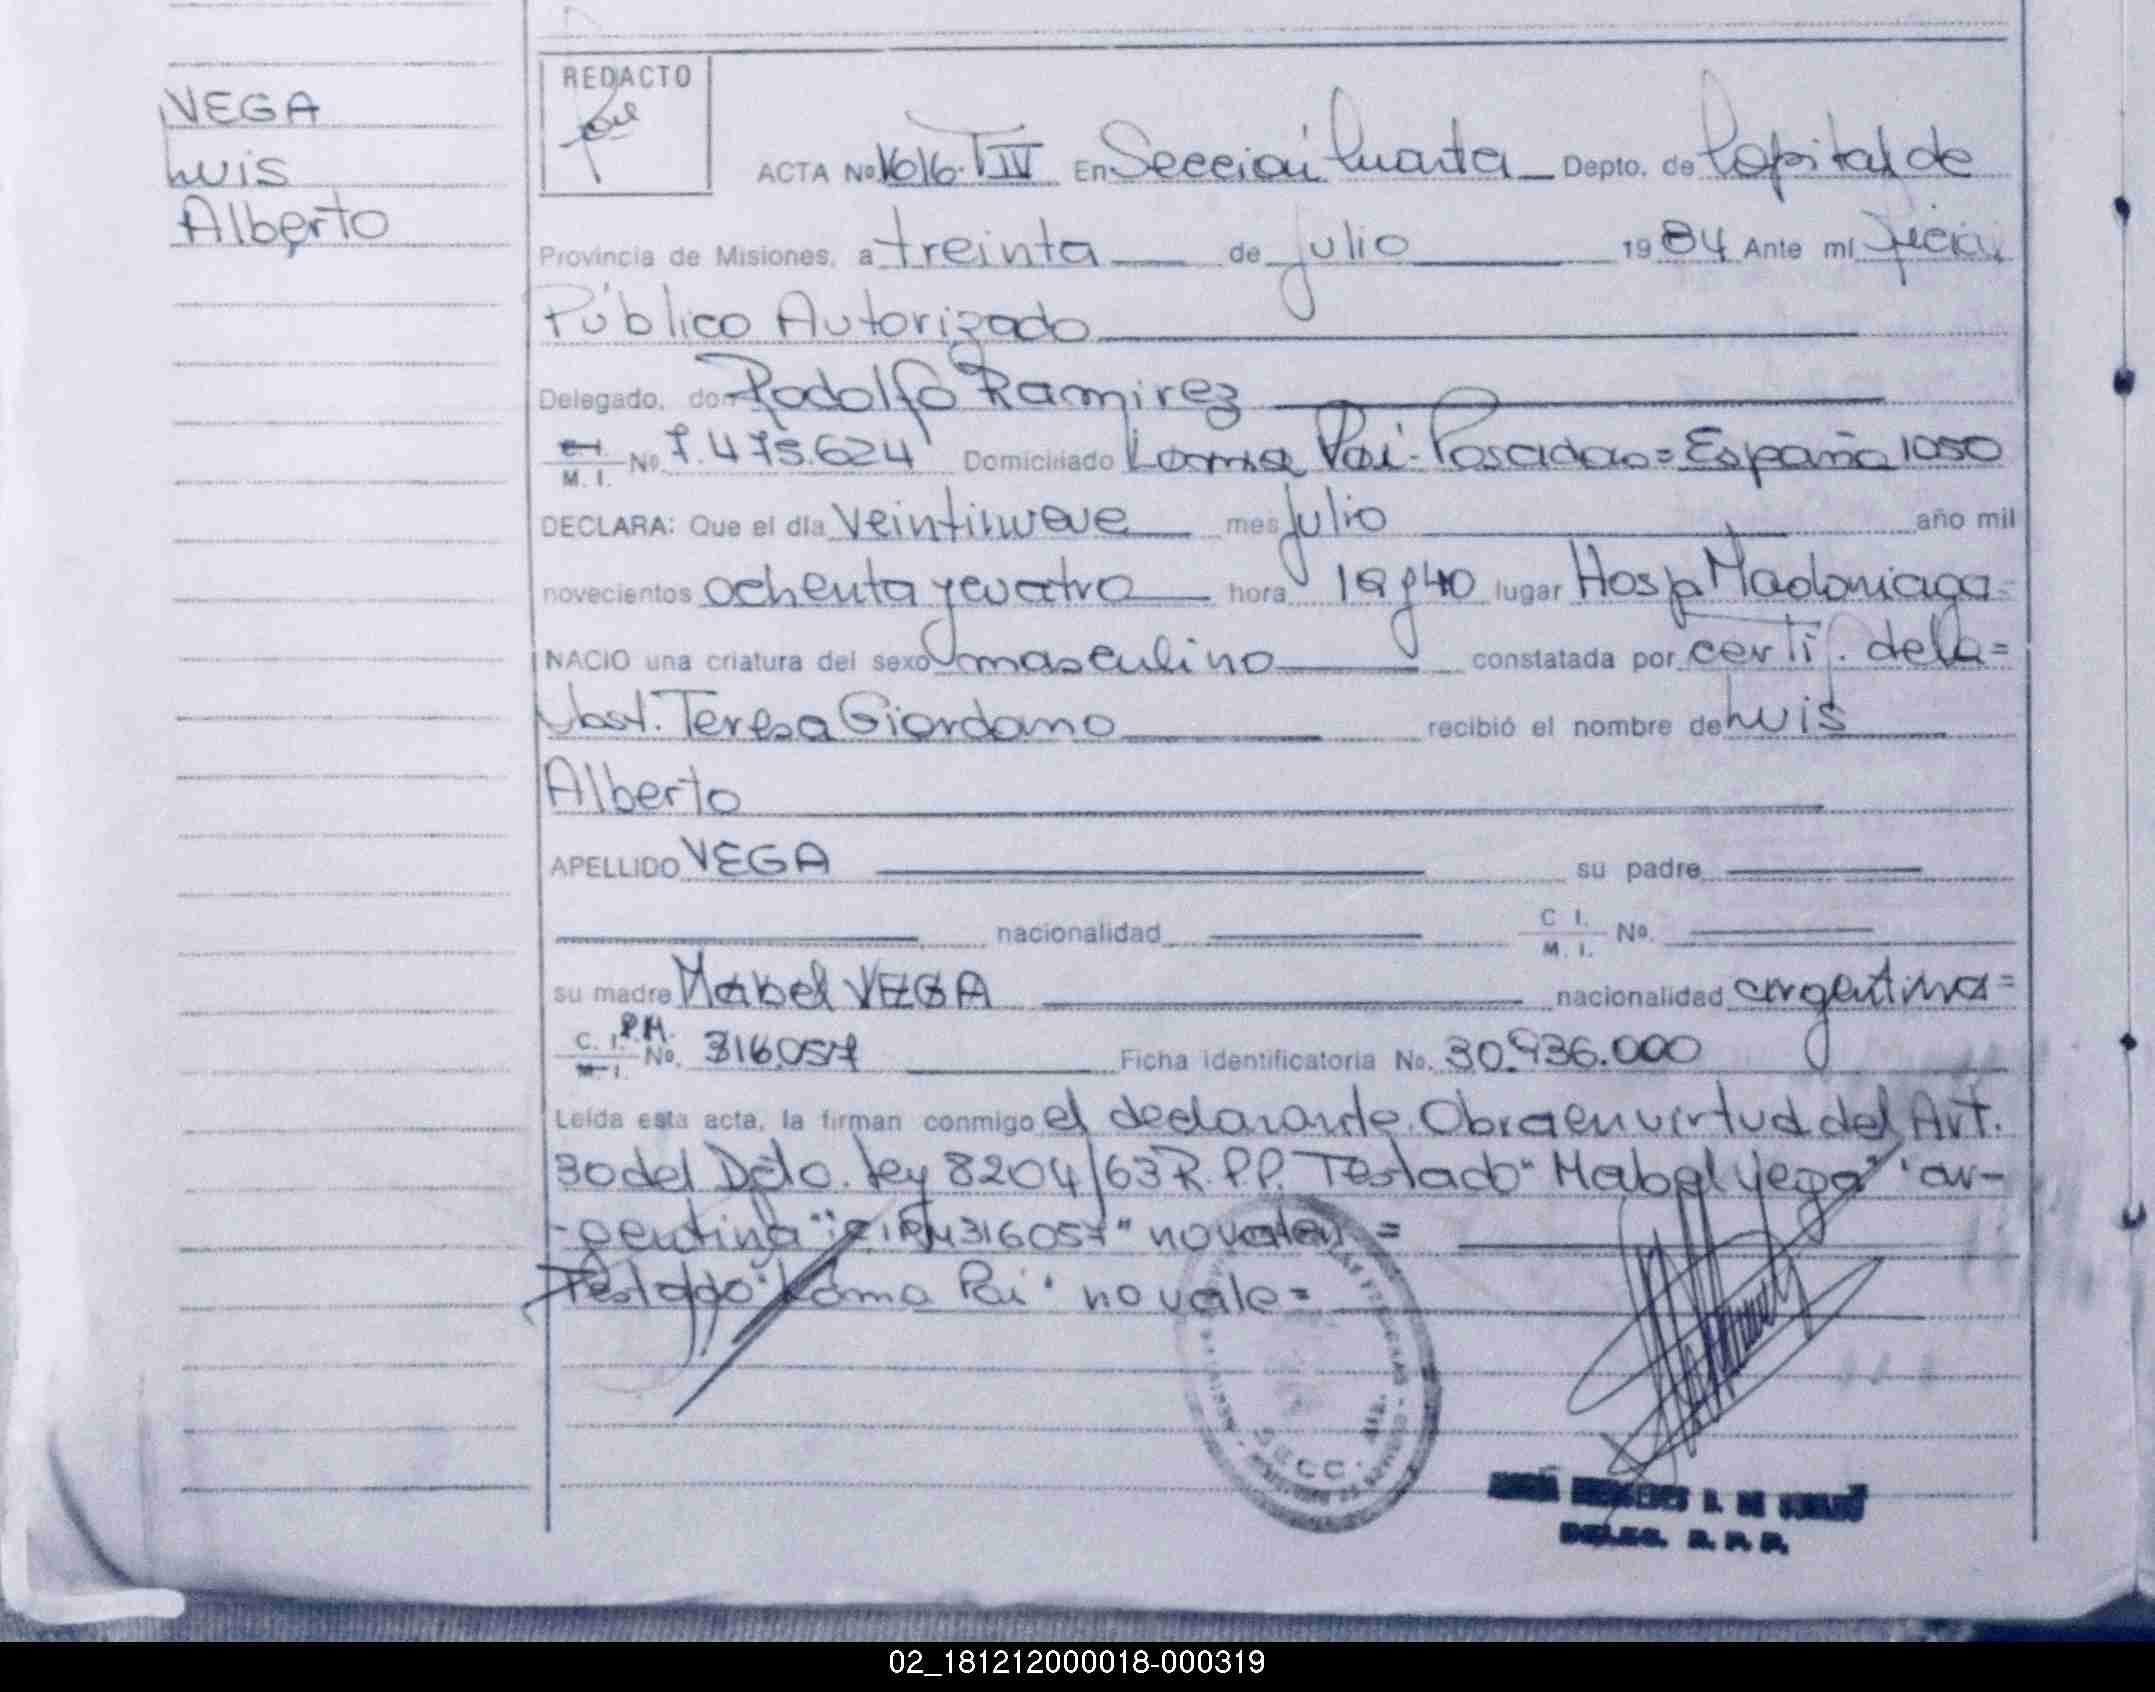 VEGA
Luis
Alberto
REDACTO
ACTA No 1616. T IV En Sección Cuarta Depto. de Capital de
Provincia de Misiones, a treinta de julio 1984 Ante mí Oficial
Público Autorizado
Delegado, don Rodolfo Ramirez
C.I. M. I. No 7.475.624 Domiciliado Loma Pai-Posadas=España 1050
DECLARA: Que el día veintinueve mes julio año mil
novecientos ochenta y cuatro hora 19 y 40 lugar Hosp Madariaga=
NACIO una criatura del sexo masculino constatada por certif. de la=
Obst. Teresa Giordano recibió el nombre de Luis
Alberto
APELLIDO VEGA su padre
nacionalidad C I. M. I. No.
su madre Mabel VEGA nacionalidad argentina=
C. I. P.M. M. I. No. 316.057 Ficha identificatoria No. 30.936.000
Leída esta acta, la firman conmigo el declarante. Obra en virtud del Art.
30 del Dcto. Ley 8204/63 R.P.P. Testado "Mabel Vega" "ar-
-gentina" "C.I.P.M 316057" no valen =
Testado "Loma Pai" no vale=
SECC.
DE SUELDO
DELEG. R. P. P.
02_181212000018-000319